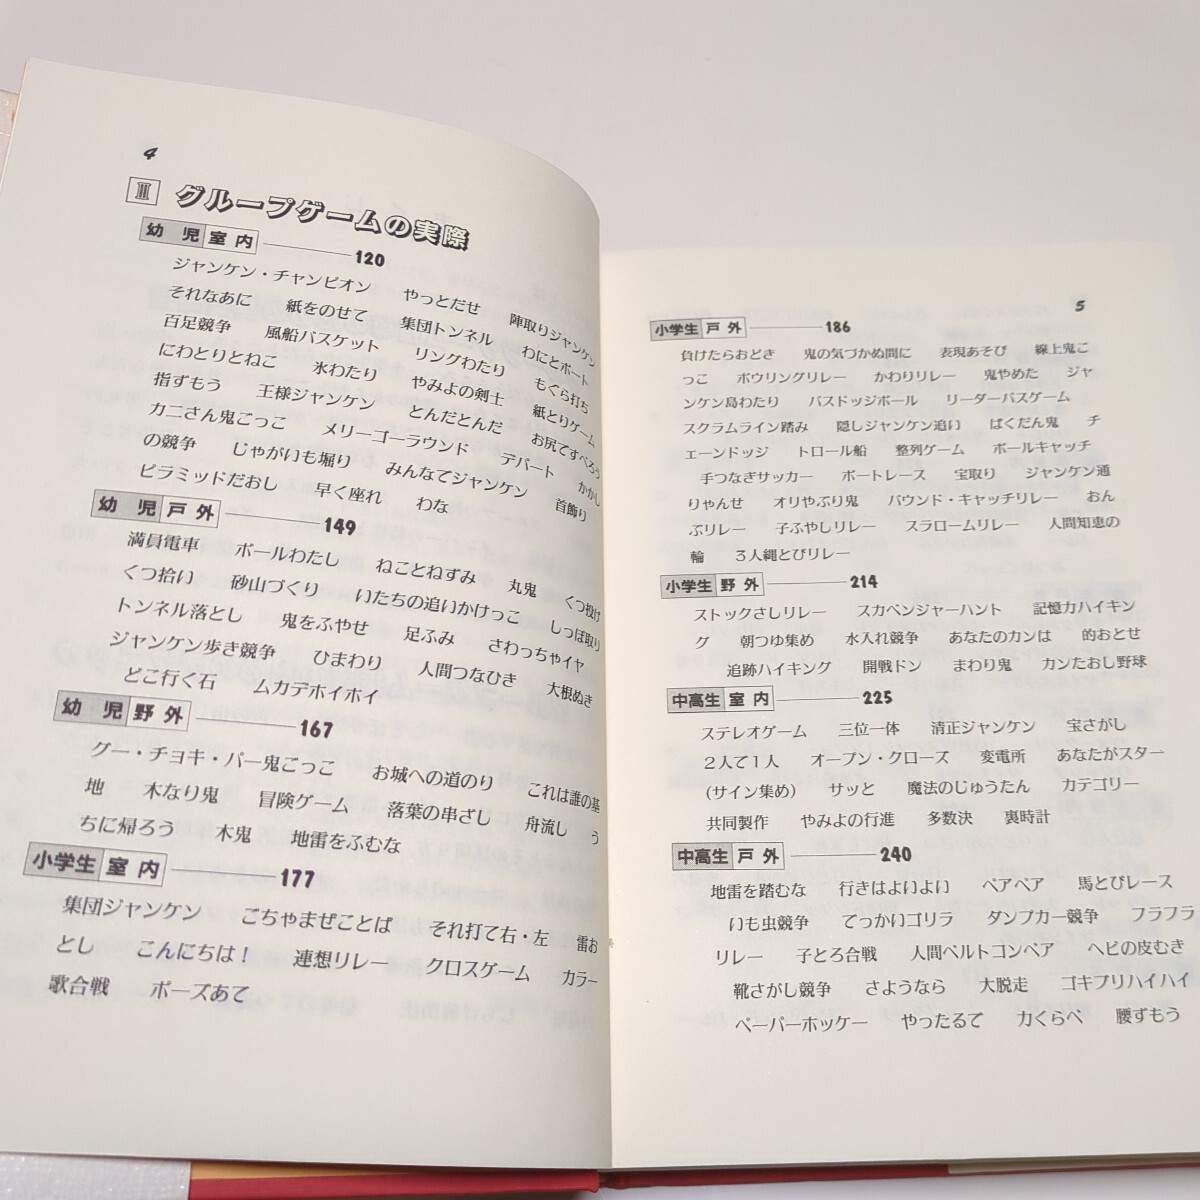 4
Ⅲ グループゲームの実際
幼児 室内 ――― 120
ジャンケン・チャンピオン　やっとだせ　陣取りジャンケン
それなあに　紙をのせて　集団トンネル　わにとボート
百足競争　風船バスケット　リングわたり　もぐら打ち
にわとりとねこ　氷わたり　やみよの剣士　紙とりゲーム
指ずもう　王様ジャンケン　とんだとんだ　お尻てすべろう
カニさん鬼ごっこ　メリーゴーラウンド　デパート　かかし
の競争　じゃがいも堀り　みんなてジャンケン　首飾り
ピラミッドだおし　早く座れ　わな
幼児 戸外 ――― 149
満員電車　ボールわたし　ねことねずみ　丸鬼　くつ投げ
くつ拾い　砂山づくり　いたちの追いかけっこ　しっぽ取り
トンネル落とし　鬼をふやせ　足ふみ　さわっちゃイヤ
ジャンケン歩き競争　ひまわり　人間つなひき　大根ぬき
どこ行く石　ムカデホイホイ
幼児 野外 ――― 167
グー・チョキ・パー鬼ごっこ　お城への道のり　これは誰の基
地　木なり鬼　冒険ゲーム　落葉の串ざし　舟流し　う
ちに帰ろう　木鬼　地雷をふむな
小学生 室内 ――― 177
集団ジャンケン　ごちゃまぜことば　それ打て右・左　雷お
とし　こんにちは！　連想リレー　クロスゲーム　カラー
歌合戦　ポーズあて
5
小学生 戸外 ――― 186
負けたらおどき　鬼の気づかぬ間に　表現あそび　線上鬼ご
っこ　ボウリングリレー　かわりリレー　鬼やめた　ジャ
ンケン島わたり　バスドッジボール　リーダーバスゲーム
スクラムライン踏み　隠しジャンケン追い　ばくだん鬼　チ
ェーンドッジ　トロール船　整列ゲーム　ボールキャッチ
手つなぎサッカー　ボートレース　宝取り　ジャンケン通
りゃんせ　オリやぶり鬼　バウンド・キャッチリレー　おん
ぶリレー　子ふやしリレー　スラロームリレー　人間知恵の
輪　３人縄とびリレー
小学生 野外 ――― 214
ストックさしリレー　スカベンジャーハント　記憶力ハイキン
グ　朝つゆ集め　水入れ競争　あなたのカンは　的おとせ
追跡ハイキング　開戦ドン　まわり鬼　カンたおし野球
中高生 室内 ――― 225
ステレオゲーム　三位一体　清正ジャンケン　宝さがし
２人て１人　オープン・クローズ　変電所　あなたがスター
(サイン集め)　サッと　魔法のじゅうたん　カテゴリー
共同製作　やみよの行進　多数決　裏時計
中高生 戸外 ――― 240
地雷を踏むな　行きはよいよい　ペアペア　馬とびレース
いも虫競争　てっかいゴリラ　ダンプカー競争　フラフラ
リレー　子とろ合戦　人間ベルトコンベア　ヘビの皮むき
靴さがし競争　さようなら　大脱走　ゴキブリハイハイ
ペーパーホッケー　やったるて　力くらべ　腰ずもう